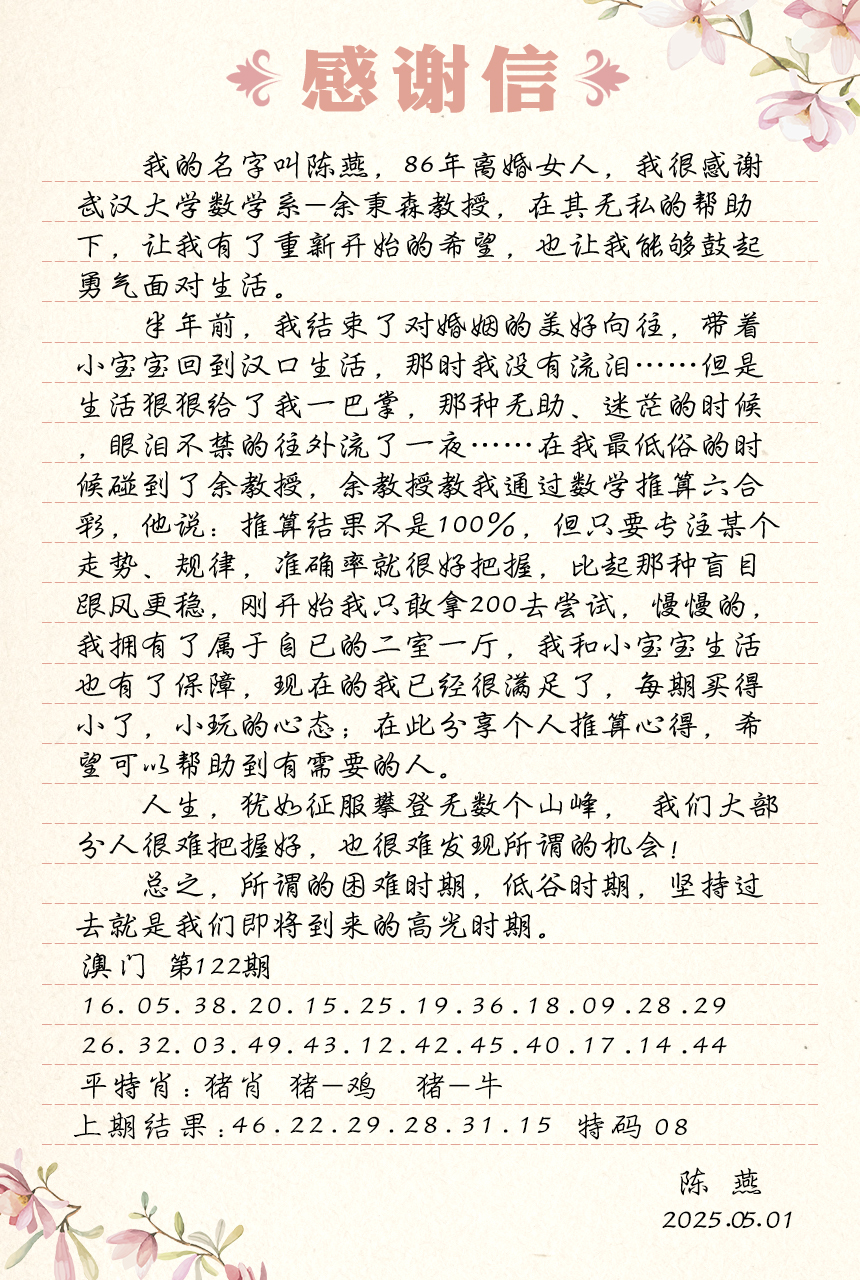 感谢信
我的名字叫陈燕，86年离婚女人，我很感谢
武汉大学数学系—余秉森教授，在其无私的帮助
下，让我有了重新开始的希望，也让我能够鼓起
勇气面对生活。
半年前，我结束了对婚姻的美好向往，带着
小宝宝回到汉口生活，那时我没有流泪……但是
生活狠狠给了我一巴掌，那种无助、迷茫的时候
，眼泪不禁的往外流了一夜……在我最低俗的时
候碰到了余教授，余教授教我通过数学推算六合
彩，他说：推算结果不是100%，但只要专注某个
走势、规律，准确率就很好把握，比起那种盲目
跟风更稳，刚开始我只敢拿200去尝试，慢慢的，
我拥有了属于自已的二室一厅，我和小宝宝生活
也有了保障，现在的我已经很满足了，每期买得
小了，小玩的心态；在此分享个人推算心得，希
望可以帮助到有需要的人。
人生，犹如征服攀登无数个山峰， 我们大部
分人很难把握好，也很难发现所谓的机会！
总之，所谓的困难时期，低谷时期，坚持过
去就是我们即将到来的高光时期。
澳门 第122期
16.05.38.20.15.25.19.36.18.09.28.29
26.32.03.49.43.12.42.45.40.17.14.44
平特肖：猪肖 猪—鸡 猪—牛
上期结果：46.22.29.28.31.15 特码 08
陈 燕
2025.05.01